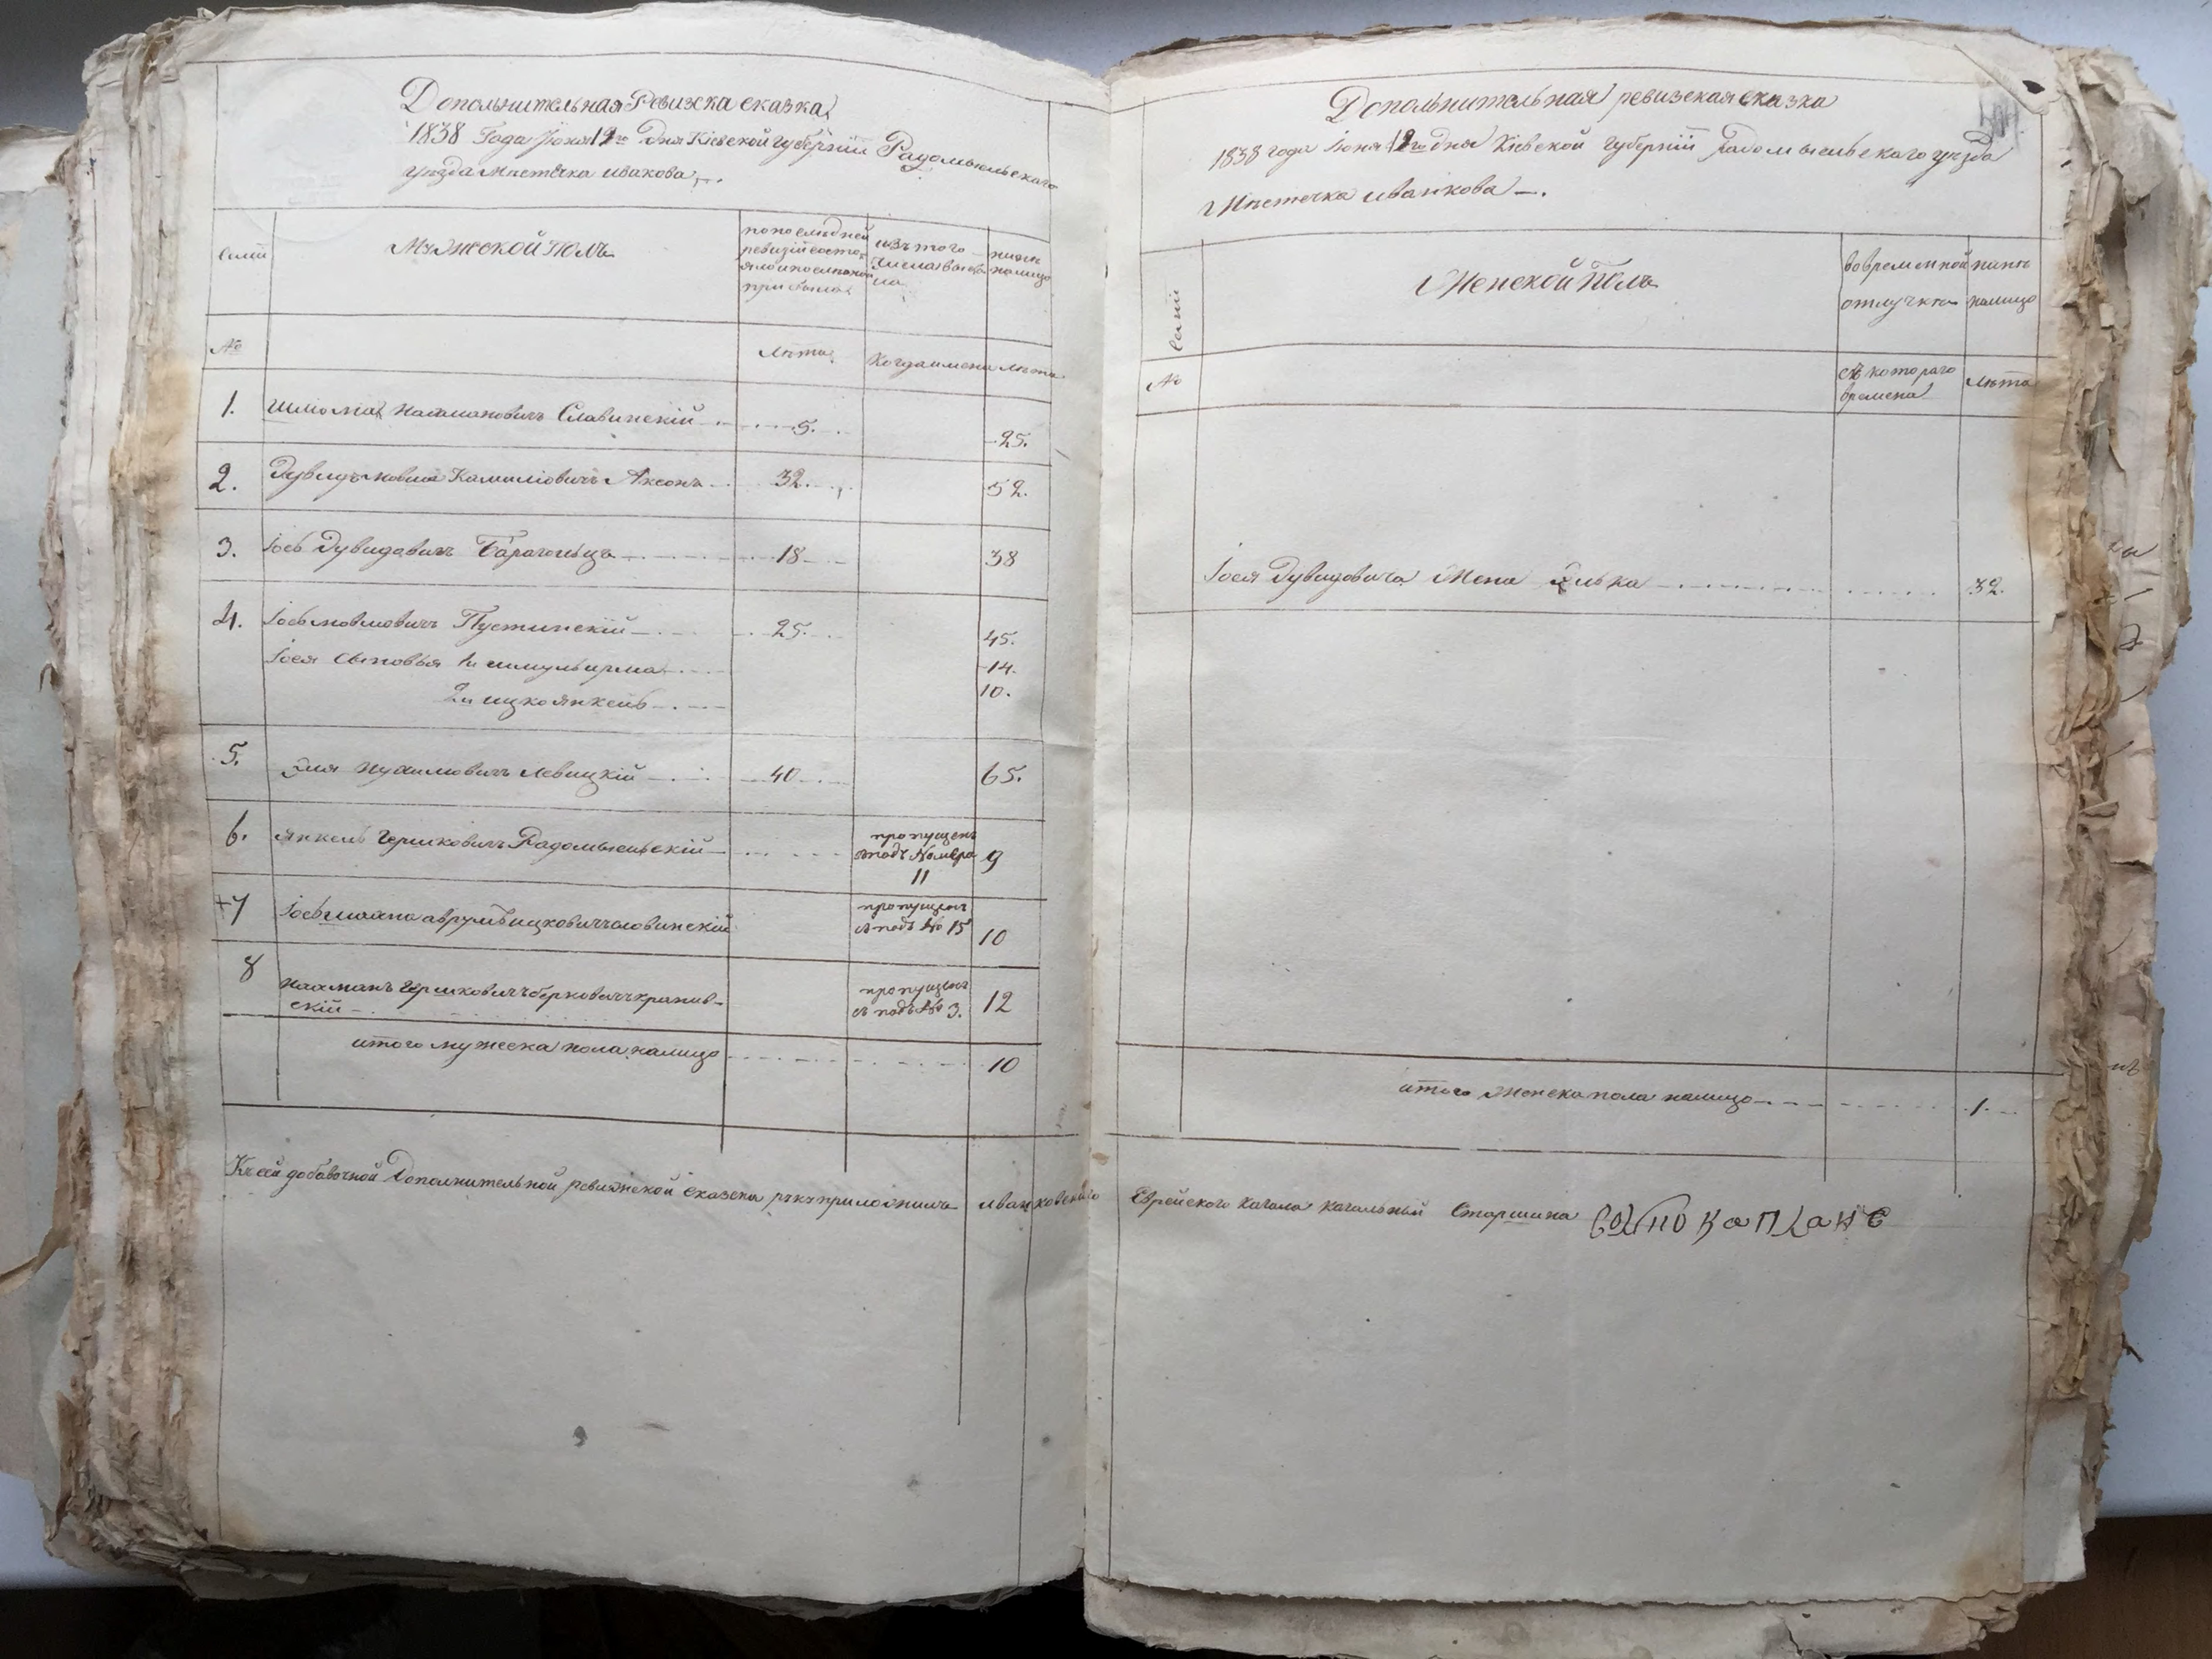 Дополнительная Ревизка сказка
1838 Года Июня 12го Дня Кіевской губерніи Радомысльскаго
уезда Местечка ивакова
семіи
Мужской Полъ
по последней
ревизіи состо
яло и после того
прибыло
изъ того
числа выбы
ло
ныне
на лицо
№
Лета
Когда именно
лета
1. Шлиома Нахмановичъ Славинскій 5. 25.
2. Дувидъ мовша Аксонъ 32. 52.
3. Іось Дувидовичъ 18 38
4. Іось мовшовичъ Пустинскій 25. 45.
Іося сыновья 1й шмуль 14.
2й ицко янкель 10.
5. Эля Нухимовичъ Левицкій 40 65.
6. янкель Гершковичъ Радомысльскій пропущенъ
подъ Номера 9
11
+7 Іось аврумъ ицковичъ словинскій пропущенъ
подъ № 15 10
8 Нахманъ Гершковичъ берковичъ кранив-
скій пропущенъ
подъ № 3. 12
итого мужеска пола налицо 10
Къ сей добавочной Дополнительной ревижской сказки рукъ приложилъ иванковскаго
Дополнительная ревизская сказка
1838 года Іюня 12го Дня Кіевской Губерніи Радомысльскаго уезда
Местечка иванкова
семіи
Женской Полъ
во временной
отлучке
ныне
на лицо
№
съ котораго
времена
лета
Іося Дувидовича Жена 32.
итого Женска пола налицо 1
Еврейского Кагала кагальный Старшина